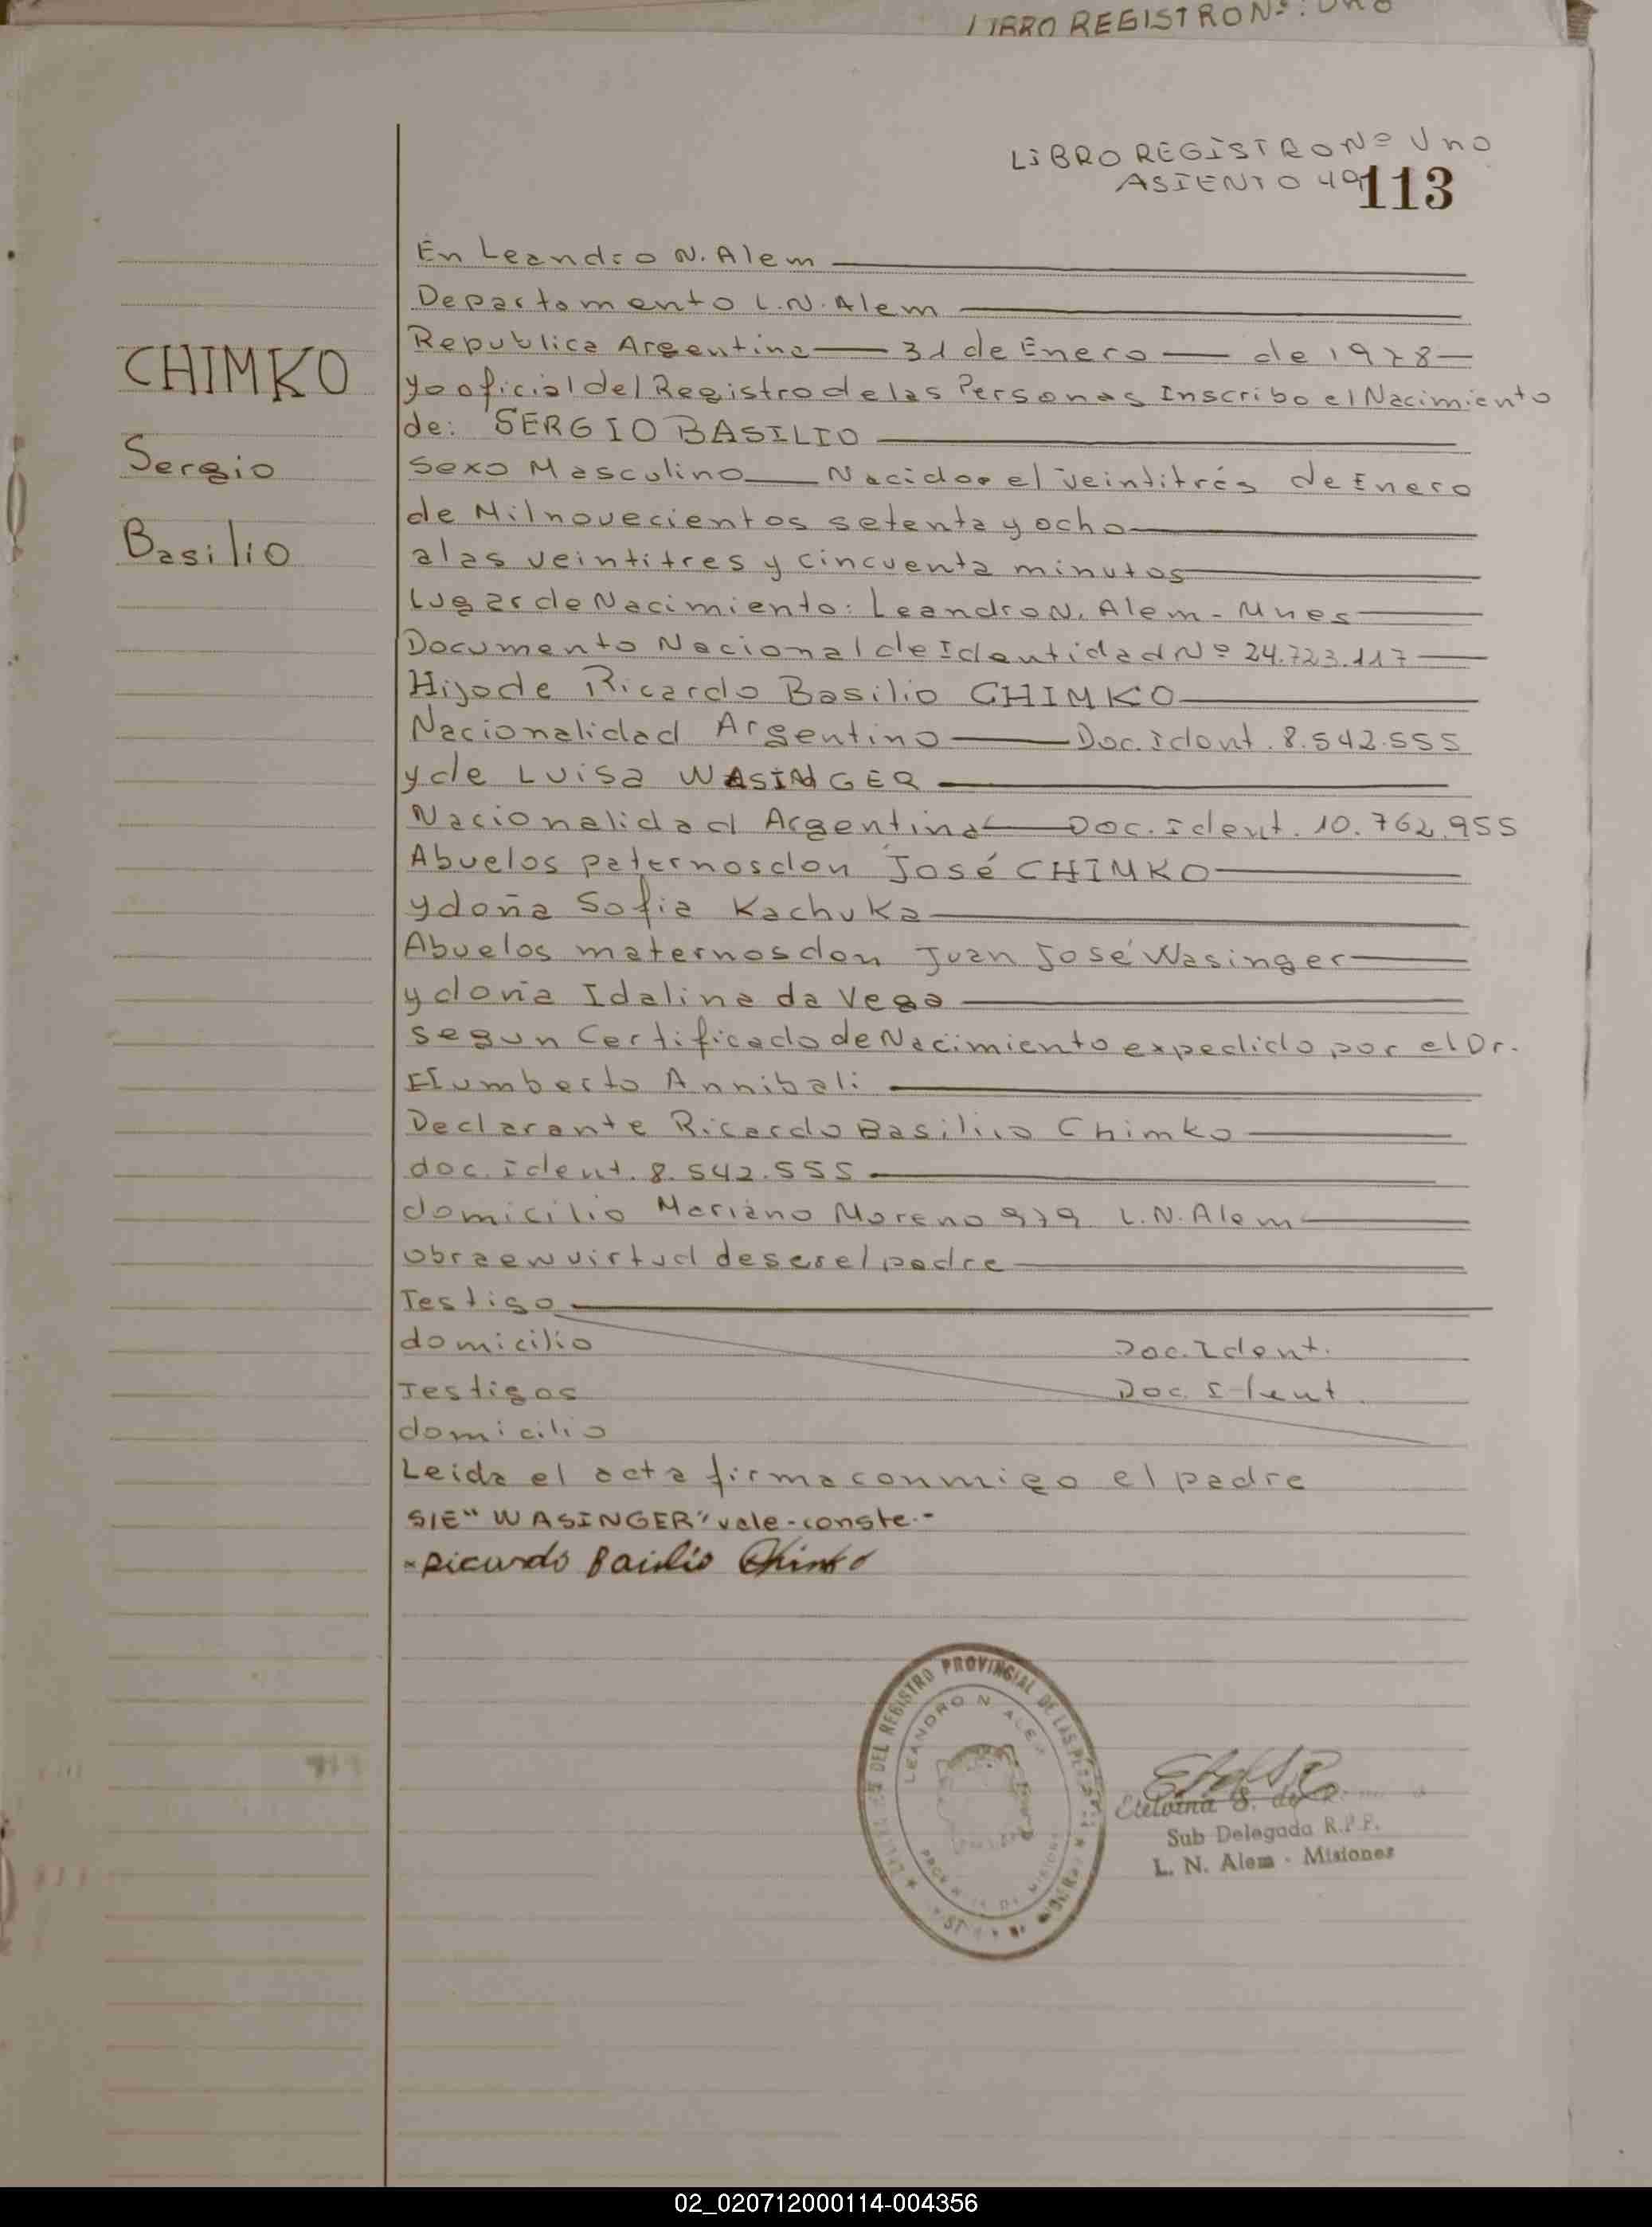 LIBRO REGISTRO Nº: Uno
LIBRO REGISTRO Nº Uno
ASIENTO 49
113
CHIMKO
Sergio
Basilio
En Leandro N. Alem
Departamento L.N. Alem
Republica Argentina 31 de Enero de 1978
yo oficial del Registro de las Personas Inscribo el Nacimiento
de: SERGIO BASILIO
Sexo Masculino Nacido el veintitrés de Enero
de Mil novecientos setenta y ocho
a las veintitres y cincuenta minutos
Lugar de Nacimiento: Leandro N. Alem - Mnes
Documento Nacional de Identidad Nº 24.723.117
Hijo de Ricardo Basilio CHIMKO
Nacionalidad Argentino Doc. ident. 8.542.555
y de LUISA WASINGER
Nacionalidad Argentina Doc. ident. 10.762.955
Abuelos paternos don José CHIMKO
y doña Sofia Kachuka
Abuelos maternos don Juan José Wasinger
y doña Idalina da Vega
segun Certificado de Nacimiento expedido por el Dr.
Humberto Annibali
Declarante Ricardo Basilio Chimko
doc. ident. 8.542.555
domicilio Mariano Moreno 979 L.N. Alem
obra en virtud de ser el padre
Testigo
domicilio Doc. Ident.
Testigos Doc. Ident
domicilio
Leida el acta firma conmigo el padre
S/E "WASINGER" vale - conste.-
Ricardo Basilio Chimko
DEL REGISTRO PROVINCIAL DE LAS
LEANDRO N. ALEM
Etelvina S. de
Sub Delegada R.P.P.
L. N. Alem - Misiones
02_020712000114-004356